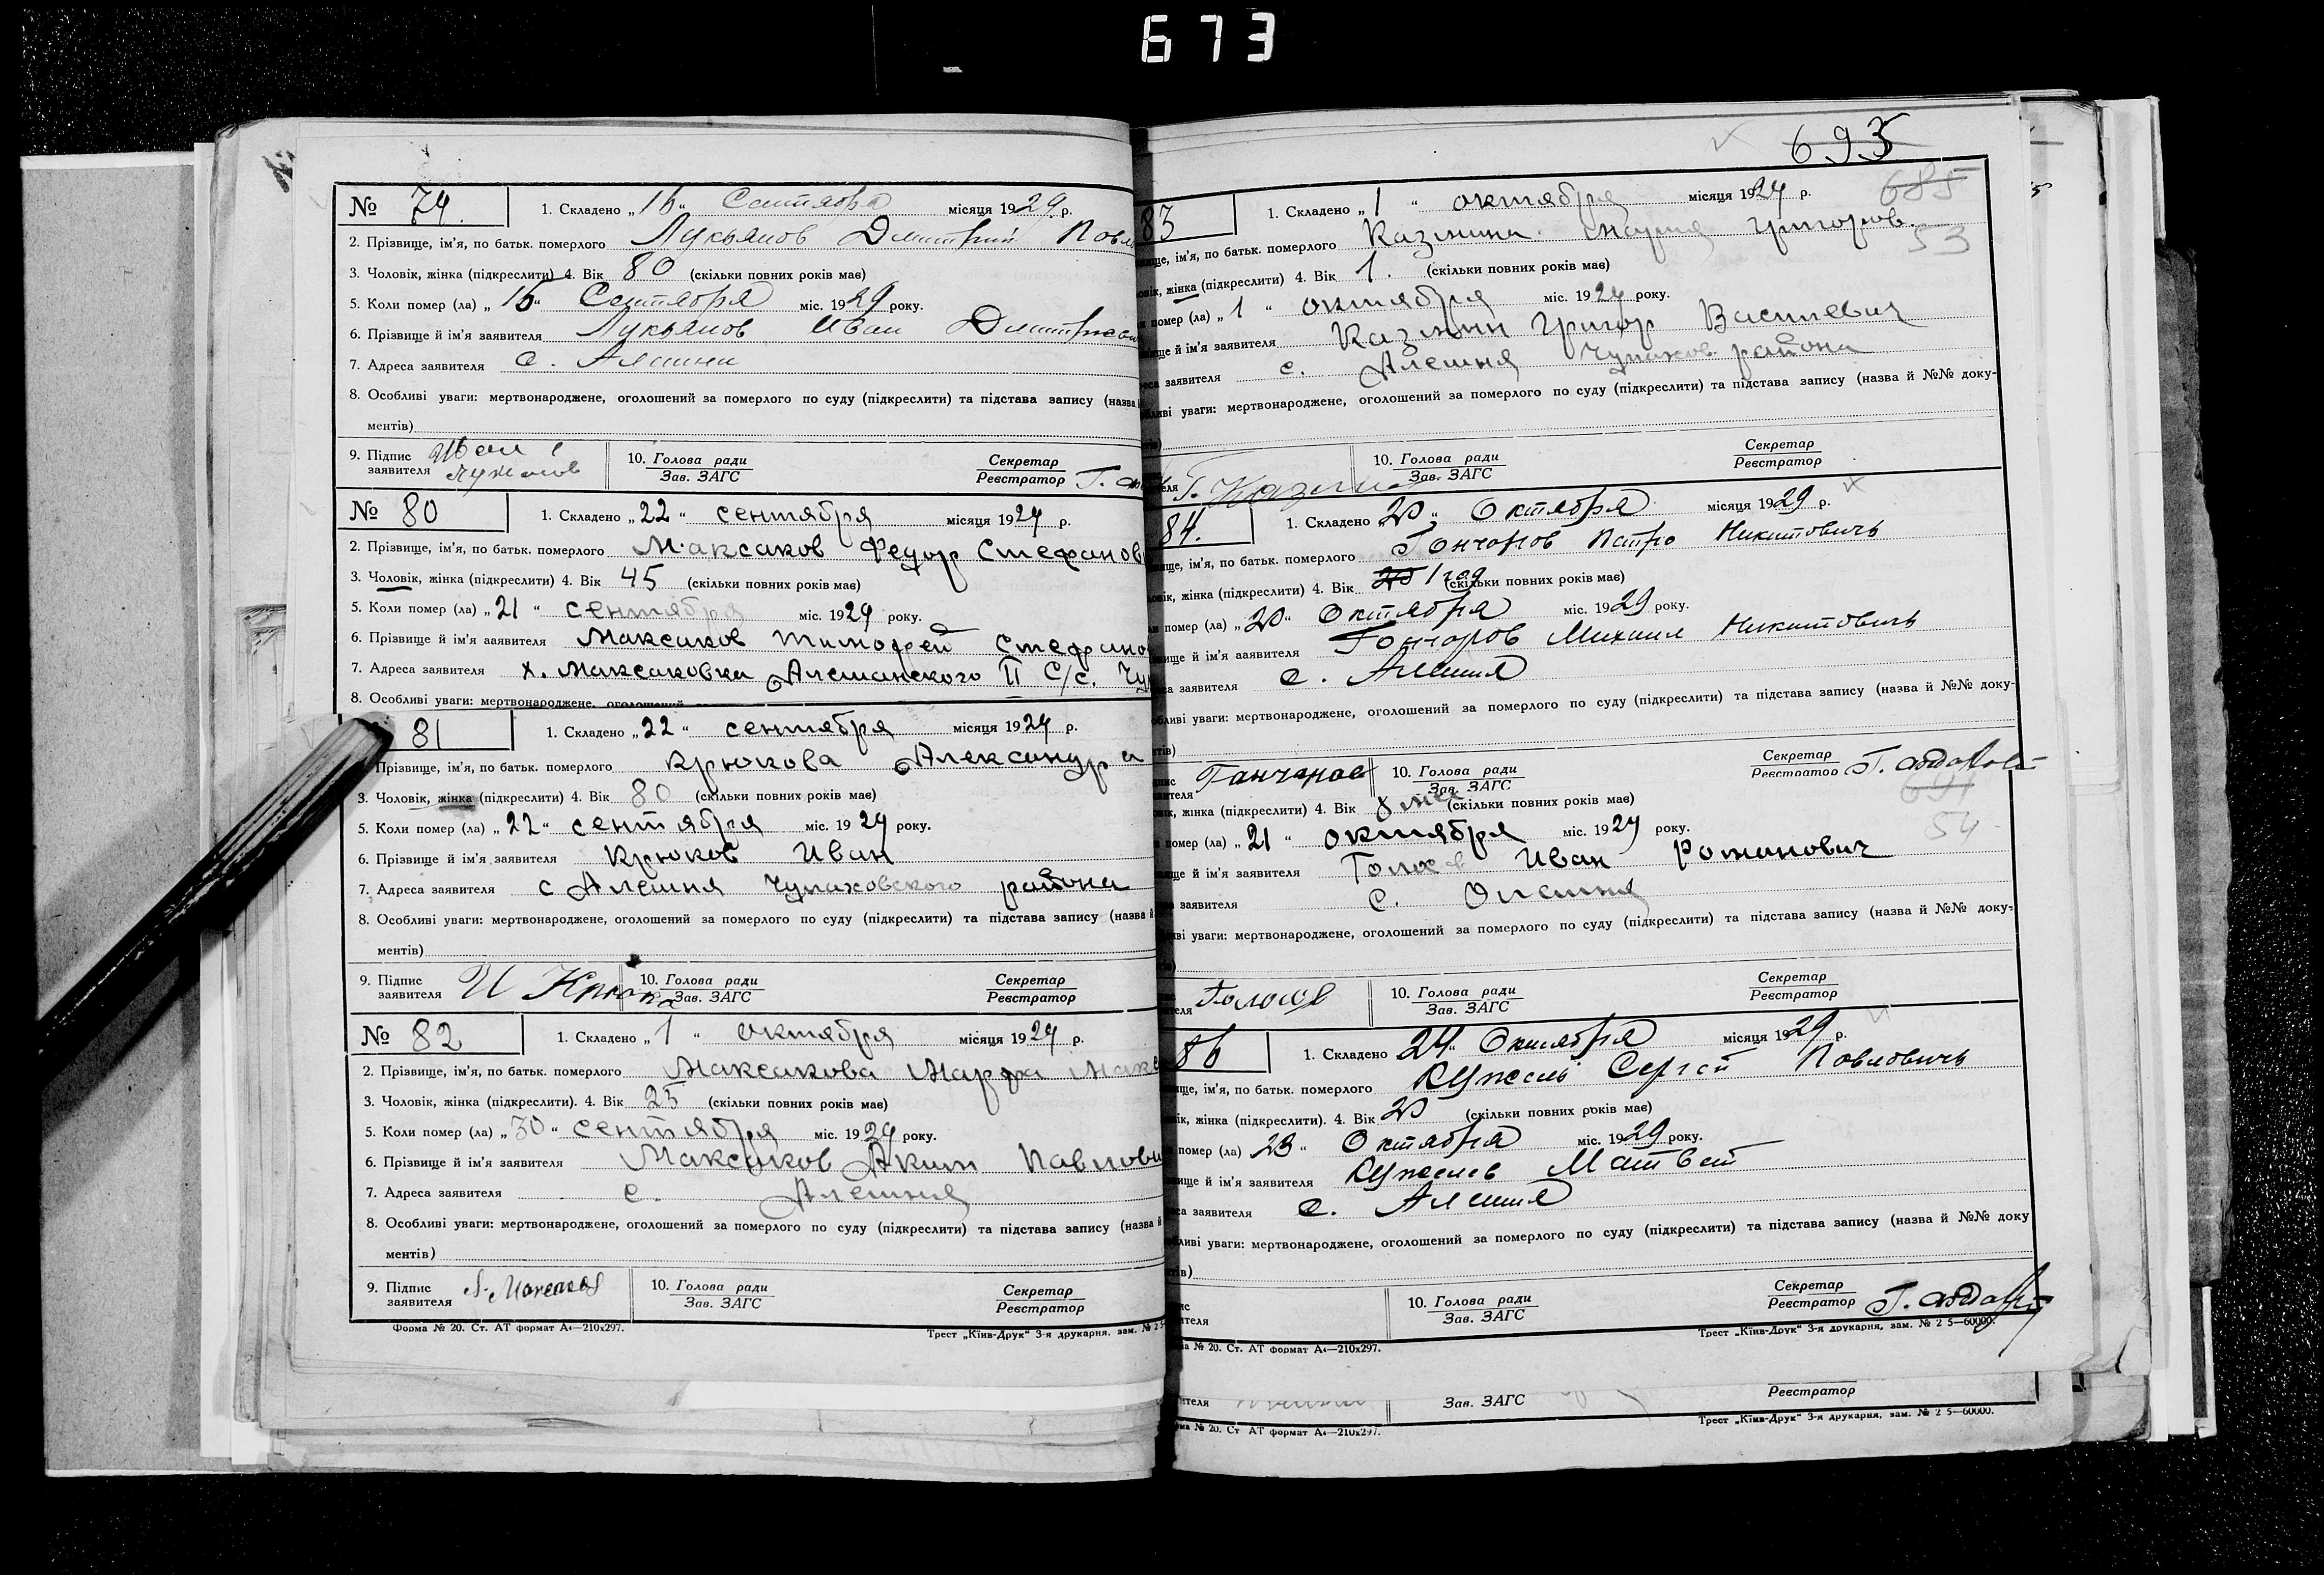 673
№ 79. 1. Складено „16“ Сентября місяця 1929 р.
2. Прізвище, ім'я, по батьк. померлого Лукьянов Дмитрий Павл
3. Чоловік, жінка (підкреслити) 4. Вік 80 (скільки повних років має)
5. Коли помер (ла) „16“ Сентября міс. 1929 року.
6. Прізвище й ім'я заявителя Лукьянов Иван
7. Адреса заявителя с. Алешни
8. Особливі уваги: мертвонароджене, оголошений за померлого по суду (підкреслити) та підстава запису (назва
ментів)
9. Підпис заявителя Иван 10. Голова ради Зав. ЗАГС Секретар Реєстратор
№ 80 1. Складено „22“ сентября місяця 1929 р.
2. Прізвище, ім'я, по батьк. померлого Максаков Федор Стефанов
3. Чоловік, жінка (підкреслити) 4. Вік 45 (скільки повних років має)
5. Коли помер (ла) „21“ сентября міс. 1929 року.
6. Прізвище й ім'я аaявителя Максаков Тимофей Стефано
7. Адреса заявителя х. Максаковка Алешанского II С/с. Чу
8. Особливі уваги: мертвонароджене, оголошений
81 1. Складено „22“ сентября місяця 1929 р.
Прізвище, ім'я, по батьк. померлого Крюкова Александра
3. Чоловік, жінка (підкреслити) 4. Вік 80 (скільки повних років має)
5. Коли помер (ла) „22“ сентября міс. 1929 року.
6. Прізвище й ім'я заявителя Крюков Иван
7. Адреса заявителя с Алешня Чупаховского района
8. Особливі уваги: мертвонароджене, оголошений за померлого по суду (підкреслити) та підстава запису (назва й
ментів)
9. Підпис заявителя И Крюко 10. Голова ради Зав. ЗАГС Секретар Реєстратор
№ 82 1. Складено „1“ октября місяця 1929 р.
2. Прізвище, ім'я, по батьк. померлого Максакова Марфа Макс
3. Чоловік, жінка (підкреслити). 4. Вік 25 (скільки повних років має)
5. Коли помер (ла) „30“ сентября міс. 1929 року.
6. Прізвище й ім'я заявителя Максаков Аким Павлови
7. Адреса заявителя с. Алешня
8. Особливі уваги: мертвонароджене, оголошений за померлого по суду (підкреслити) та підстава запису (назва й
ментів)
9. Підпис заявителя А. Максаков 10. Голова ради Зав. ЗАГС Секретар Реєстратор
Форма № 20. Ст. АТ формат А4—210х297. Трест „Київ-Друк“ 3-я друкарня, зам. № 25
693
685
53
83 1. Складено „1“ октября місяця 1929 р.
ище, ім'я, по батьк. померлого Казмина Мария Григоров.
овік, жінка (підкреслити) 4. Вік 1. (скільки повних років має)
помер (ла) „1“ октября міс. 1929 року.
ище й ім'я заявителя Казмин Григор Васильевич
еса заявителя с. Алешня Чупахов. района
бливі уваги: мертвонароджене, оголошений за померлого по суду (підкреслити) та підстава запису (назва й №№ доку-
тів)
теля Г. Казмин 10. Голова ради Зав. ЗАГС Секретар Реєстратор
84. 1. Складено 20 „ Октября місяця 1929 р.
ище, ім'я, по батьк. померлого Гончаров Петро Никитовичь
овік, жінка (підкреслити) 4. Вік 20 1 год (скільки повних років має)
помер (ла) „20“ Октября міс. 1929 року.
вище й ім'я аaявителя Гончаров Михаил Никитовичь
са заявителя с. Алешня
обливі уваги: мертвонароджене, оголошений за померлого по суду (підкреслити) та підстава запису (назва й №№ доку-
тів)
пис вителя Ганчаров 10. Голова ради Зав. ЗАГС Секретар Реєстратор
691
54
ік, жінка (підкреслити) 4. Вік 8 мес (скільки повних років має)
помер (ла) „21“ октября міс. 1929 року.
ище й ім'я заявителя Голосов Иван Романович
заявителя с. Олешня
иві уваги: мертвонароджене, оголошений за померлого по суду (підкреслити) та підстава запису (назва й №№ доку-
)
теля Голосов 10. Голова ради Зав. ЗАГС Секретар Реєстратор
86 1. Складено 24 „ Октября місяця 1929 р.
ище, ім'я, по батьк. померлого Кужель Сергей Повловичь
ік, жінка (підкреслити). 4. Вік 20 (скільки повних років має)
помер (ла) 23“ Октября міс. 1929 року.
ище й ім'я заявителя Матвей
са заявителя с. Алешня
ливі уваги: мертвонароджене, оголошений за померлого по суду (підкреслити) та підстава запису (назва й №№ доку
тів)
ис ителя 10. Голова ради Зав. ЗАГС Секретар Реєстратор
Трест „Київ-Друк“ 3-я друкарня, зам. № 2 5—60000.
ма № 20. Ст. АТ формат А4—210х297.
ителя Зав. ЗАГС Реєстратор
Трест „Київ-Друк“ 3-я друкарня, зам. № 2 5—60000.
ма № 20. Ст АТ формат А4—210х297.